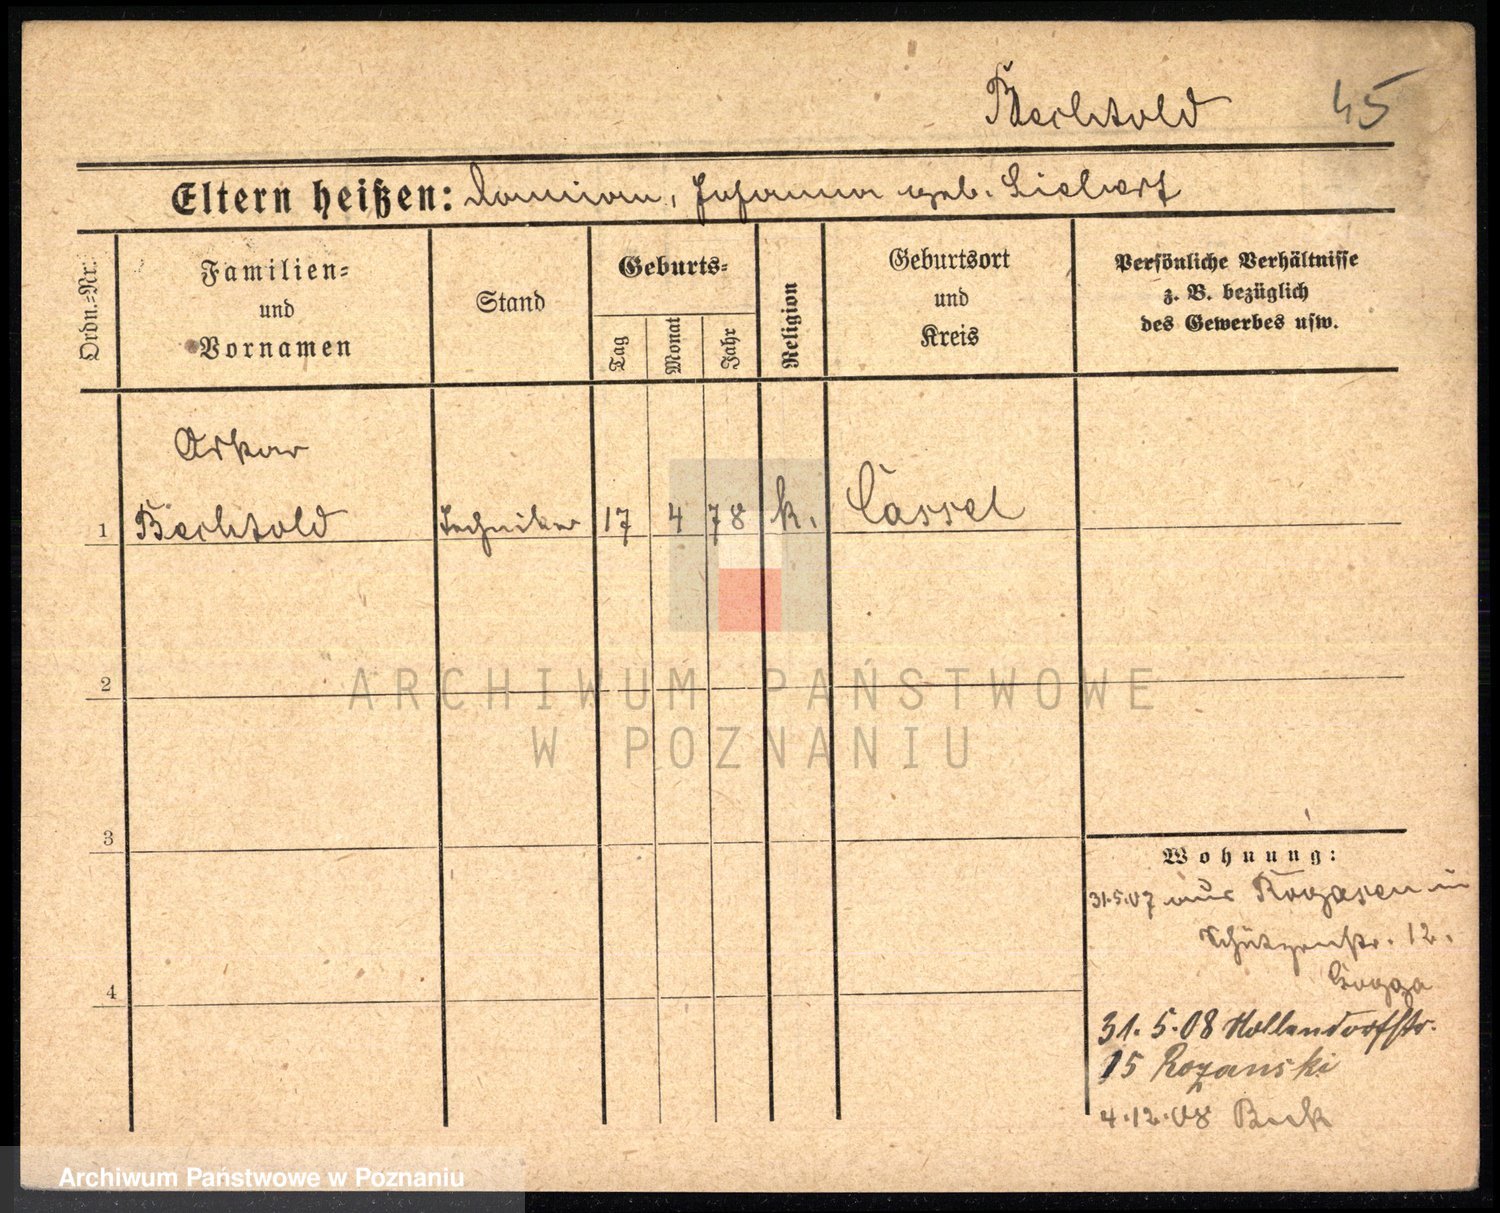 Bechtold 45
Eltern heißen: Damian, Johanna geb. Liebert
Ordn.=Nr.
Familien=
und
Vornamen
Stand
Geburts=
Tag
Monat
Jahr
Religion
Geburtsort
und
Kreis
Persönliche Verhältnisse
z. B. bezüglich
des Gewerbes usw.
Oskar
1 Bechtold Techniker 17 4 78 k. Cassel
2
3
4
Wohnung:
31.5.07 aus Rogasen in
Schützenstr. 12.
31.5.08 Hollendorfstr.
15 Rozanski
4.12.08
ARCHIWUM PAŃSTWOWE
W POZNANIU
Archiwum Państwowe w Poznaniu